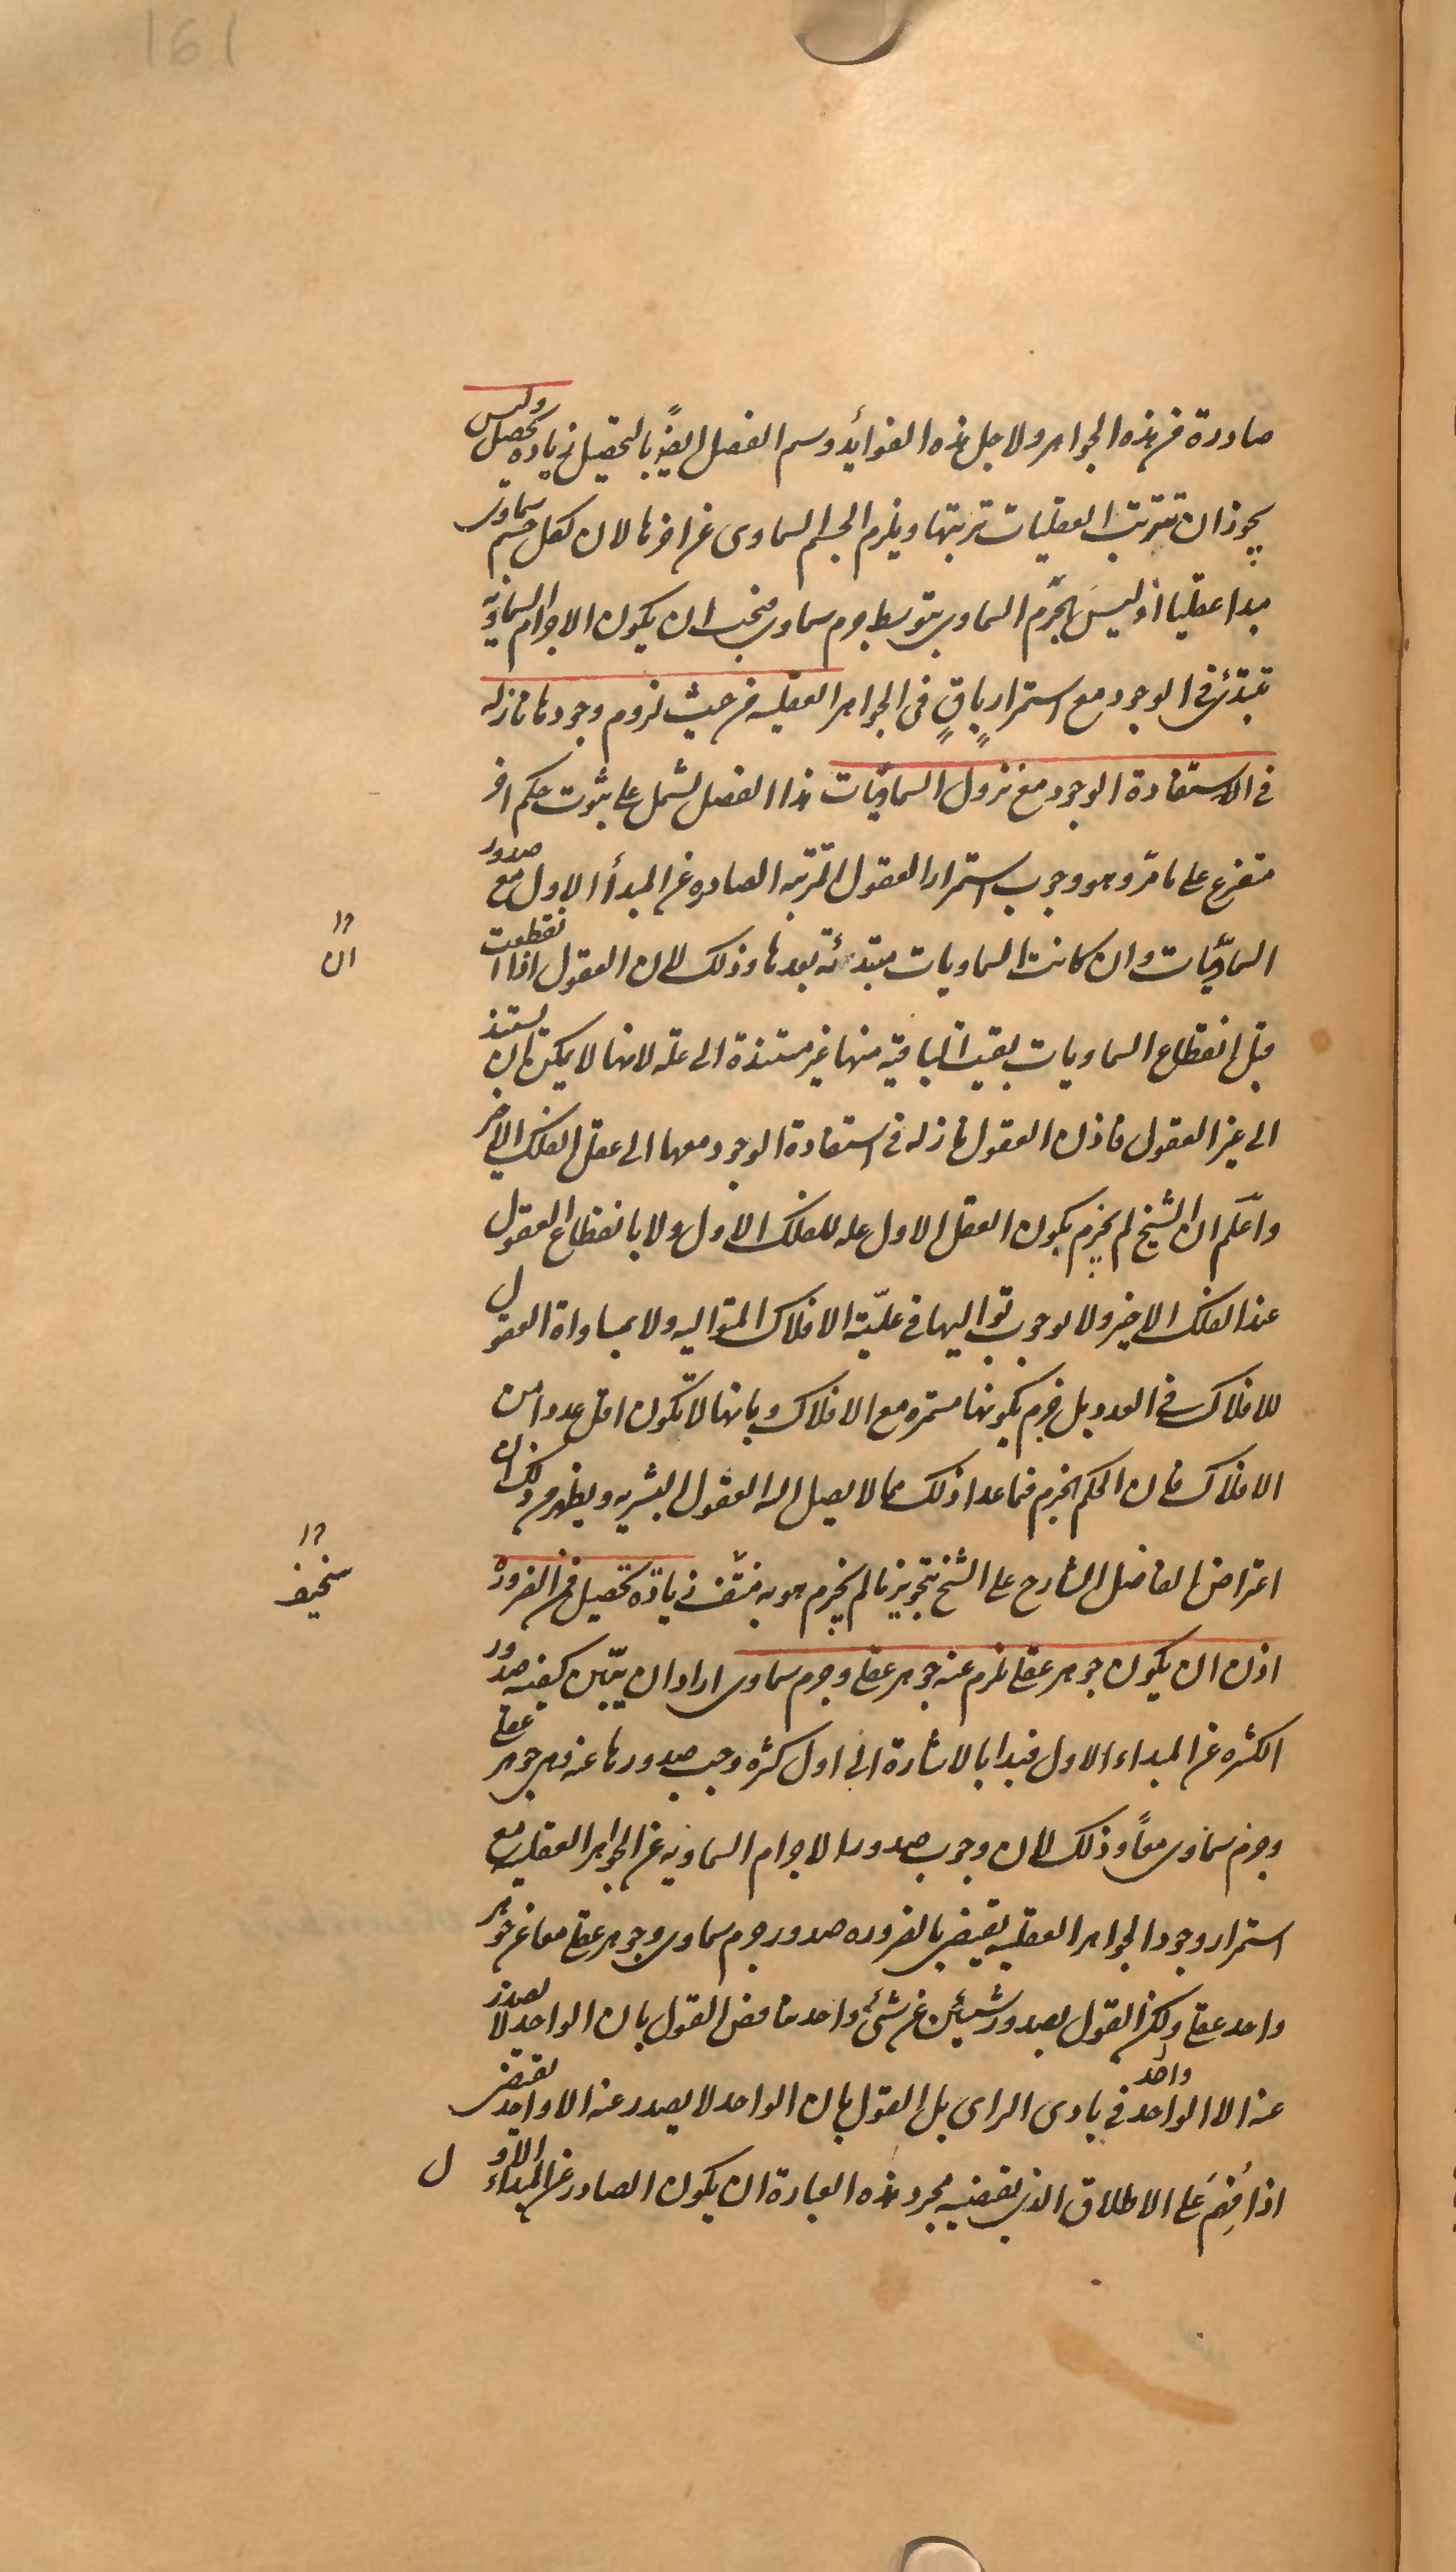 161
صادرة من هذه الجواهر ولاجل هذه الفوائد وسم الفصل ايضاً بالتحصيل زيادة تحصيل وليس
يجوز ان تترتب العقليات ترتبها ويلزم الجسم السماوى عن اخرها لان لكل جسم سماوى
مبدا عقليا اذ ليس الجرم السماوى بتوسط جرم سماوى فيجب ان يكون الاجرام السماوية
تبتدئ فى الوجود مع استمرار باقٍ فى الجواهر العقليه من حيث لزوم وجودها نازله
فى الاستفادة الوجود مع نزول السماويّات هذا الفصل يشمل على ثبوت حكم اخر
متفرع على ما مرّ وهو وجوب استمرار العقول المترتبه الصادره عن المبدأ الاول مع صدور
السماويّات وان كانت السماويات مبتدئه بعدها وذلك لان العقول اذا انقطعت
ان
قبل انقطاع السماويات بقيت الباقية منها غير مستندة الى علة لانها لا يمكن ان يستند
الى غير العقول فاذن العقول نازله فى استفادة الوجود معها الى عقل الفلك الاخير
واعلم ان الشيخ لم يجزم بكون العقل الاول علة للفلك الاول ولا بانقطاع العقول
عند الفلك الاخير ولا لوجوب تواليها فى علّية الافلاك المتواليه ولا بمساواة العقول
للافلاك فى العدد بل جزم بكونها مستمرة مع الافلاك وبانها لا تكون اقل عددا من
الافلاك فان الحكم الجزم فيما عدا ذلك مما لا يصل اليه العقول البشريه ويظهر من ذلك ان
اعتراض الفاضل الشارح على الشيخ بتجويز ما لم يجزم هو به زيادة تحصيل فمن الضرورة
سخيف
اذن ان يكون جوهر عقلى يلزم عنه جوهر عقلى وجرم سماوى اراد ان يبيّن كيفيه صدور
الكثره عن المبداء الاول فبدا بالاشارة الى اول كثرة وجب صدورها عنه وهى جوهر عقلى
وجرم سماوى معاً وذلك لان وجوب صدور الاجرام السماويه عن الجواهر العقليه مع
استمرار وجود الجواهر العقليه يقتضى بالضروره صدور جرم سماوى وجوهر عقلى معا عن جوهر
واحد عقلى ولكن القول بصدور شيئين عن شئ واحد يناقض القول بان الواحد لا يصدر
عنه الا الواحد واحد فى بادى الراى بل القول بان الواحد لا يصدر عنه الا واحد يقتضى
اذا فُهِمَ على الاطلاق الذى يقتضيه مجرد هذه العبارة ان يكون الصادر عن المبداء الاول